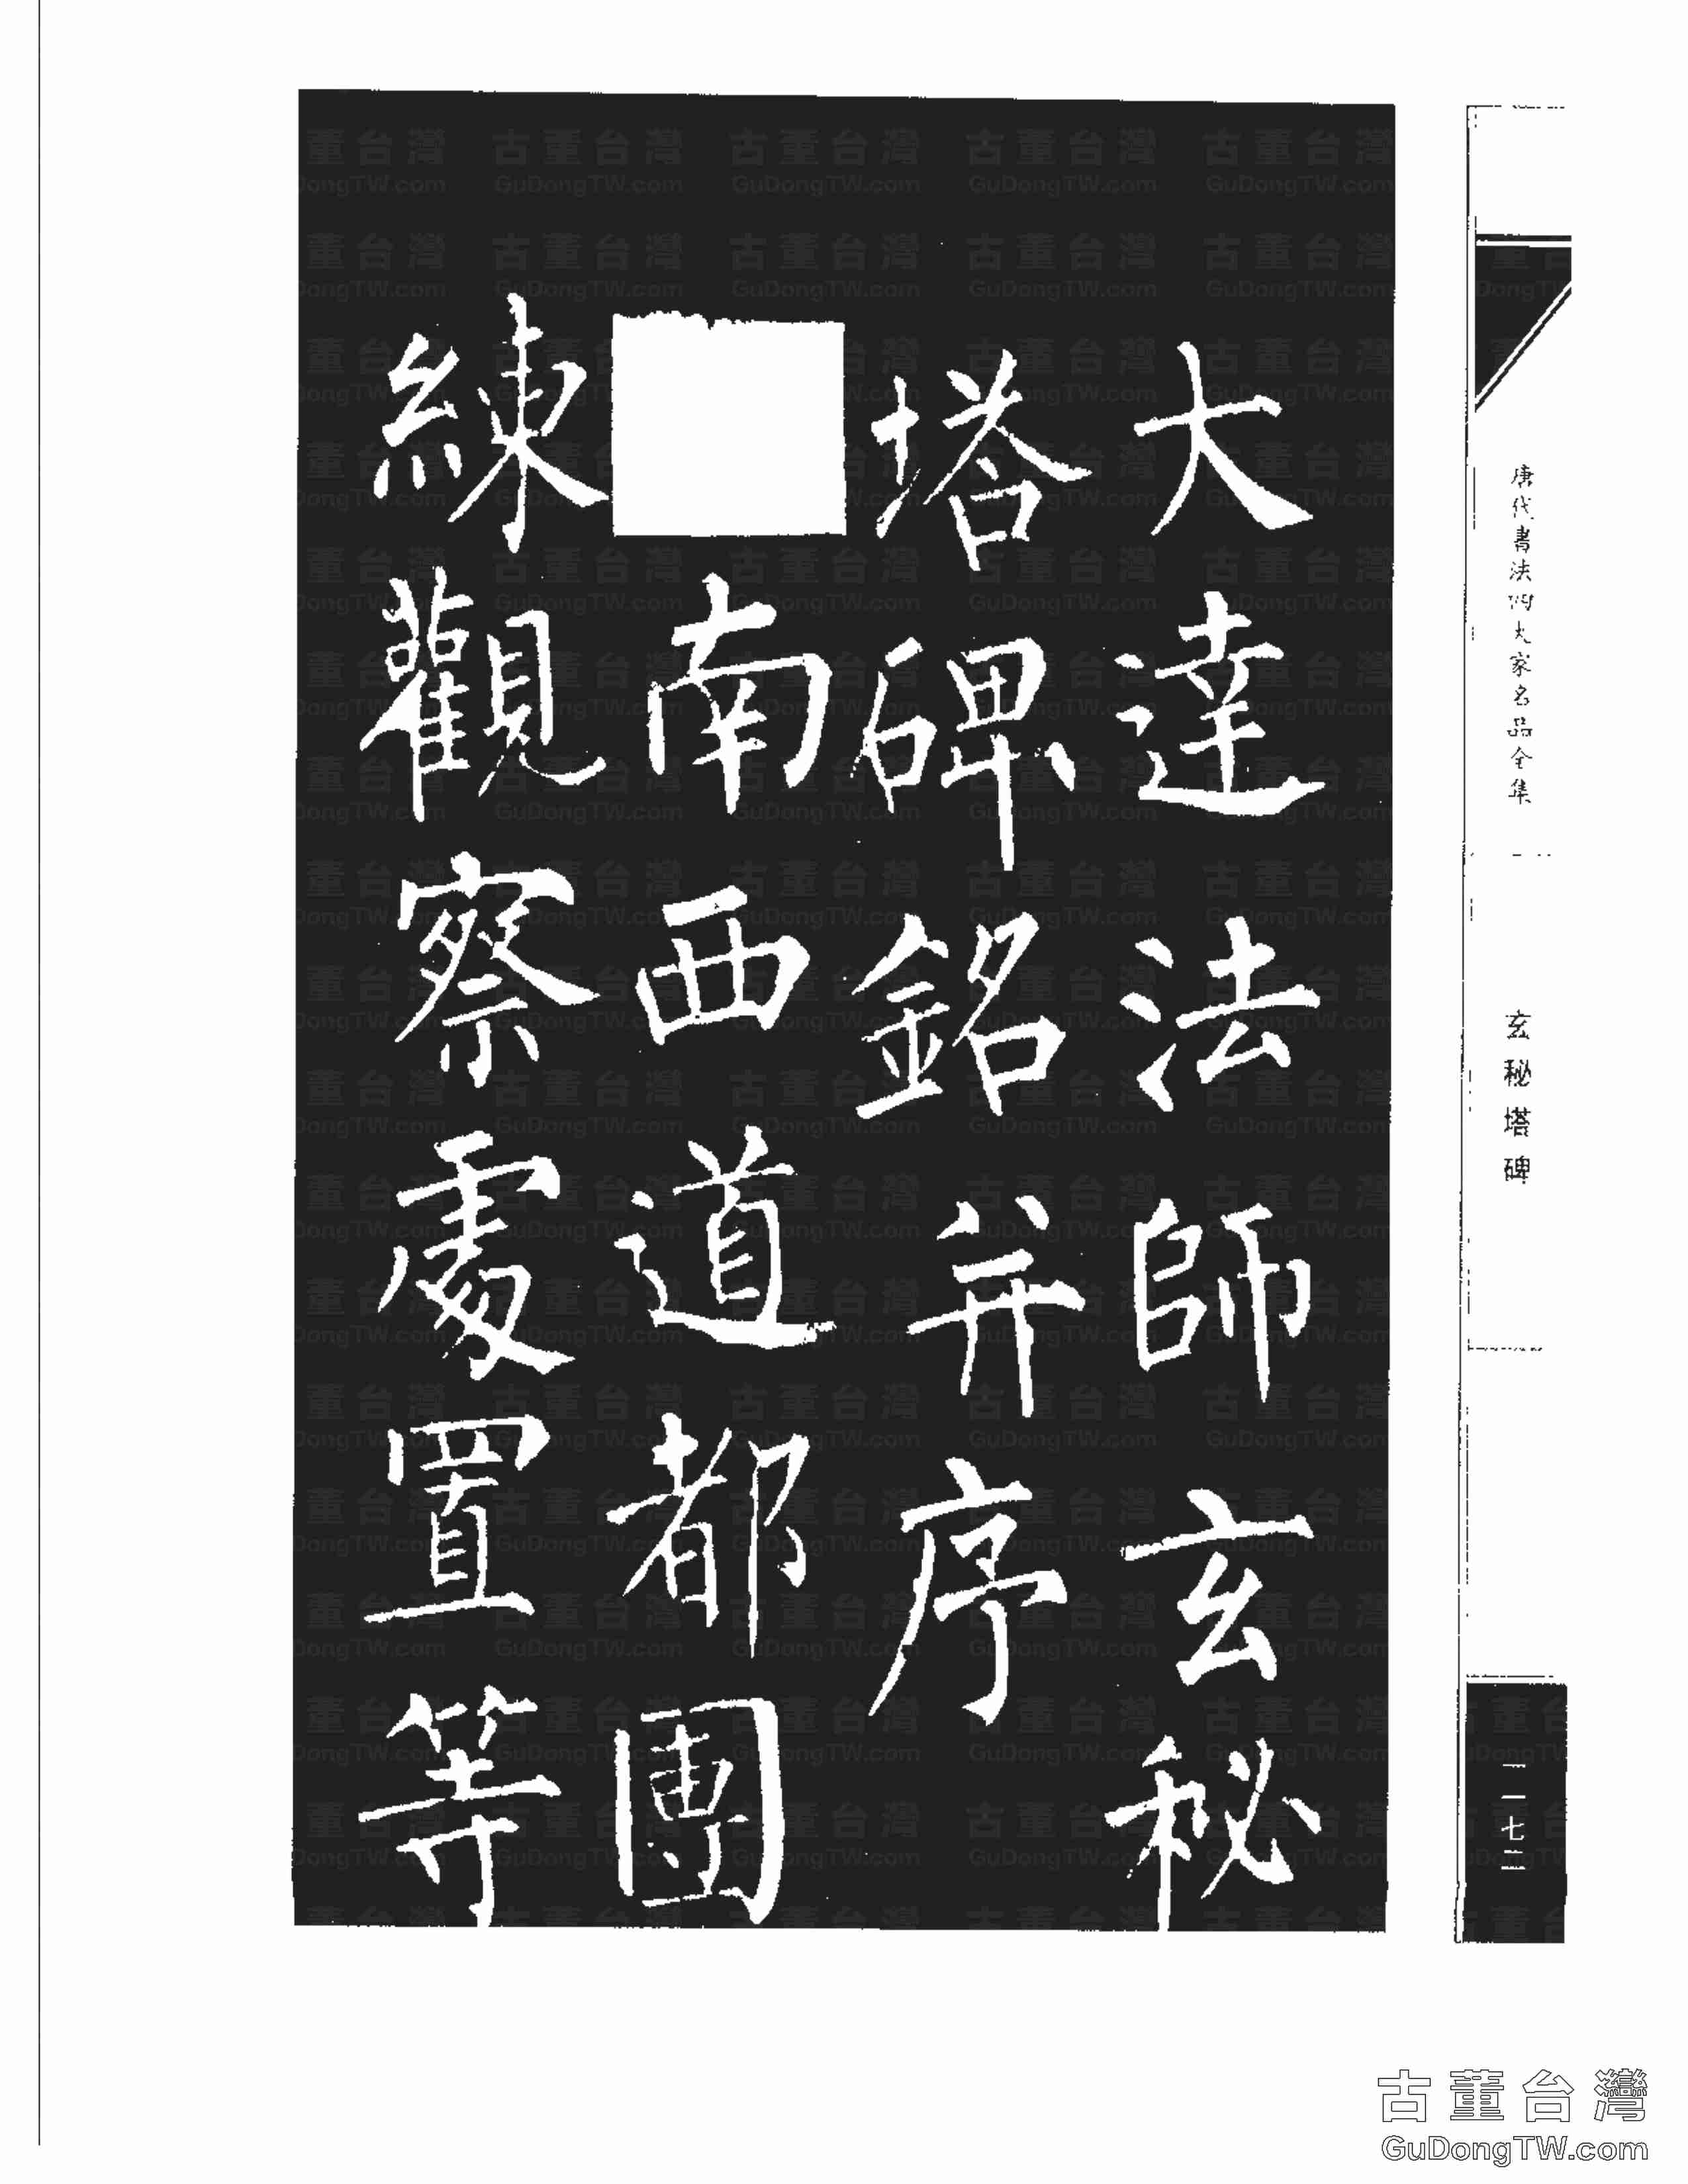 唐代書法四大家名品全集
玄秘塔碑
一一七三
大達法師玄秘
塔碑銘并序
南西道都團
練觀察處置等
古董台灣
GuDongTW.com